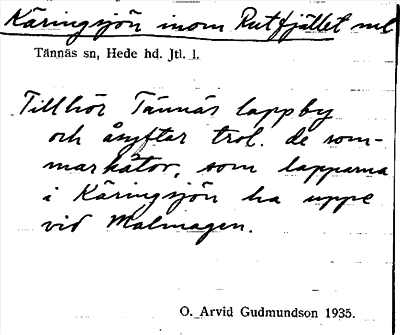 Käringsjön inom Rutfjället nel
Tännäs sn, Hede hd. Jtl. l.
Tillhör Tännäs lappby
och åsyftar trol. de som-
markåtor, som lapparna
i Käringsjön ha uppe
vid Malmagen.
O. Arvid Gudmundson 1935.